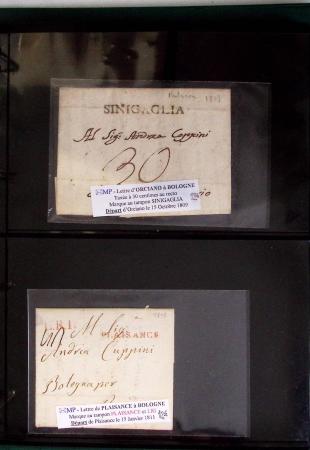 1809
SINIGAGLIA
Al Sigr Andrea Cuppini
30
EMP - Lettre d'ORCIANO à BOLOGNE
Taxée à 30 centimes au recto
Marque au tampon SINIGAGLIA
Départ d'Orciano le 15 Octobre 1809
L.B.I. PLAISANCE
Al Sig.
Andrea Cuppini
Bologna per
EMP - Lettre de PLAISANCE à BOLOGNE
Marque au tampon PLAISANCE et LBI
Départ de Plaisance le 15 Janvier 1811